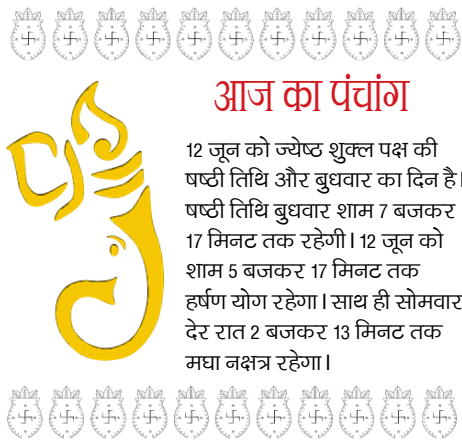 आज का पंचांग
12 जून को ज्येष्ठ शुक्ल पक्ष की
षष्ठी तिथि और बुधवार का दिन है।
षष्ठी तिथि बुधवार शाम 7 बजकर
17 मिनट तक रहेगी। 12 जून को
शाम 5 बजकर 17 मिनट तक
हर्षण योग रहेगा। साथ ही सोमवार
देर रात 2 बजकर 13 मिनट तक
मघा नक्षत्र रहेगा।